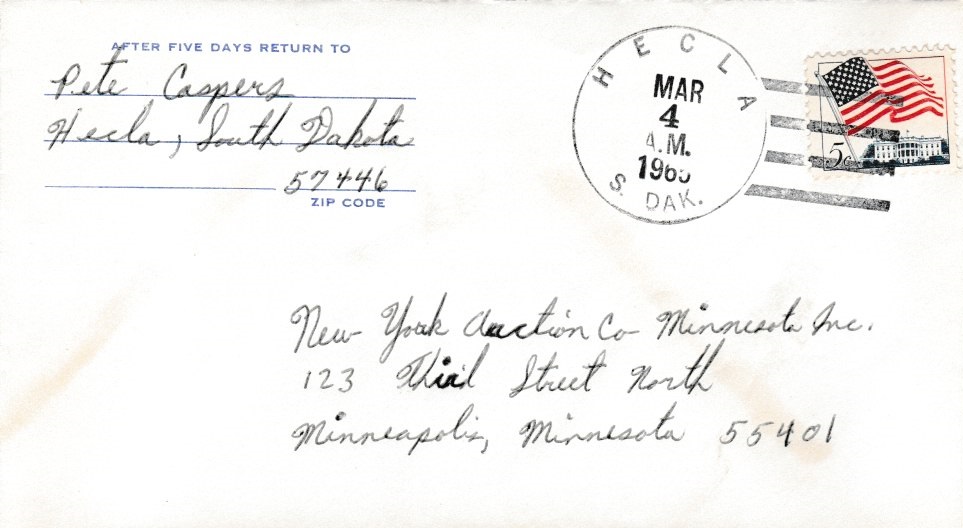 AFTER FIVE DAYS RETURN TO
Pete Caspers
Hecla, South Dakota
57446
ZIP CODE
HECLA
MAR
4
A.M.
S. DAK.
5c
New York Auction Co Minnesota Inc.
123 Third Street North
Minneapolis, Minnesota 55401